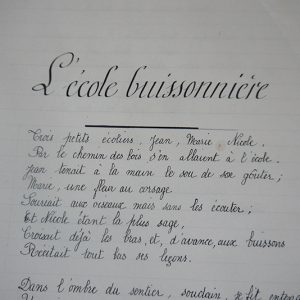 L'école buissonnière
Trois petits écoliers, Jean, Marie, Nicole,
Par le chemin des bois s'en allaient à l'école.
Jean tenait à la main le sou de son goûter;
Marie, une fleur au corsage
Souriait aux oiseaux mais sans les écouter;
Et Nicole étant la plus sage,
Croisait déjà les bras, et, d'avance, aux buissons
Récitait tout bas ses leçons.
Dans l'ombre du sentier, soudain, se fit